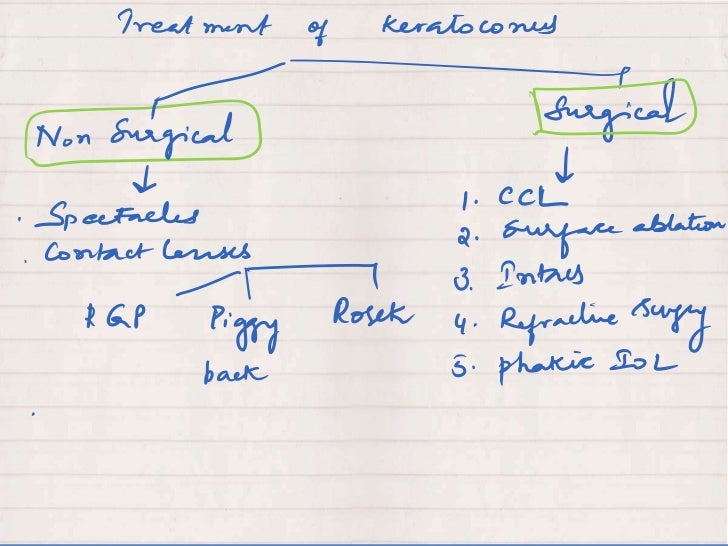 Treatment of Keratoconus
Non Surgical
Surgical
. Spectacles
. Contact lenses
RGP Piggy back RoseK
1. CCL
2. Surface ablation
3. Intacs
4. Refractive Surgery
5. phakic IOL